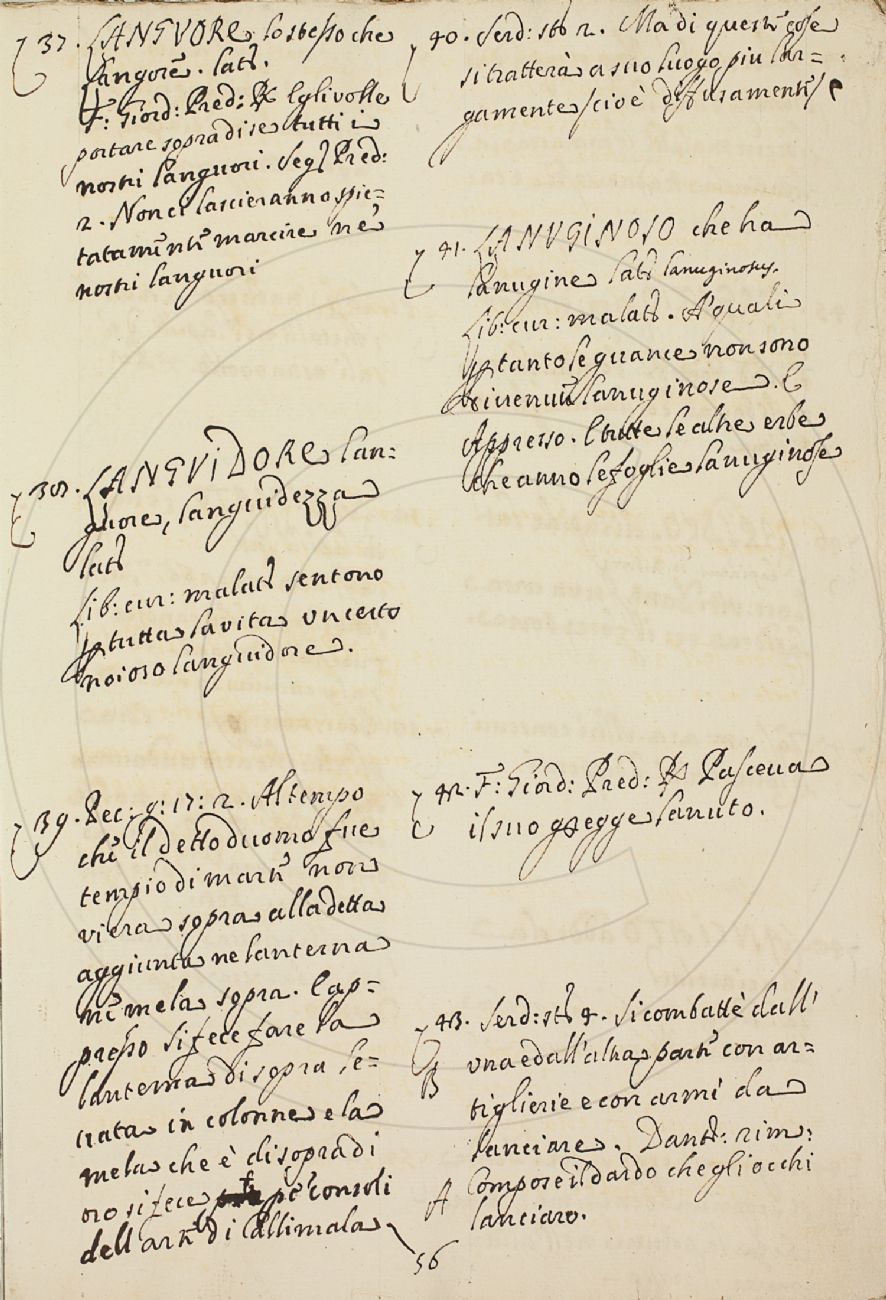 37. LANGUORE lo stesso che
langore. lat.
F: Giord: Pred: R Egli volle
portare sopra di se tutti i
nostri languori. Seg: Pred:
2. Non ci lascieranno spie=
tatamente marcire ne
nostri languori
38. LANGVIDORE lan=
guore, languidezza
lat.
Lib: cur: malat. sentono
p tutta la vita vn certo
noioso languidore.
39. Pec: g: 17: 2. Al tempo
che il detto duomo fue
tempio di marte non
v'iera sopra alla detta
aggiunta ne lanterna
ne mela sopra. E ap=
presso si fece fare la
lanterna di sopra le=
uata in colonne e la
mela che è di sopra di
oro si fece pe' consoli
dell'arte di Callimala
40. Serd: st. 2. Ma di queste cose
si tratterà a suo luogo piu lar=
gamente / cioè diffusamente /
41. LANVGINOSO che ha
lanugine lat. lanuginosus.
Lib: cur: malat. A' quali
p tanto le guance non sono
diuenute lanuginose. E
Appresso. E tutte le altre erbe
che anno le foglie lanuginose
42. F: Giord: Pred: R Pasceua
il suo gregge lanuto.
43. Serd: st. 4. Si combattè dall'
B vna e dall'altra parte con ar=
tiglierie e con armi da
lanciare. Dant: rim:
A Compose il dardo che gli occhi
lanciaro.
56